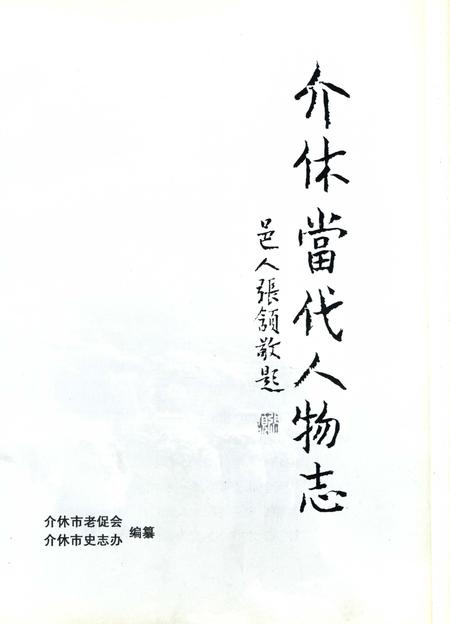 介休當代人物志
邑人張頷敬題
介休市老促会
介休市史志办
编纂